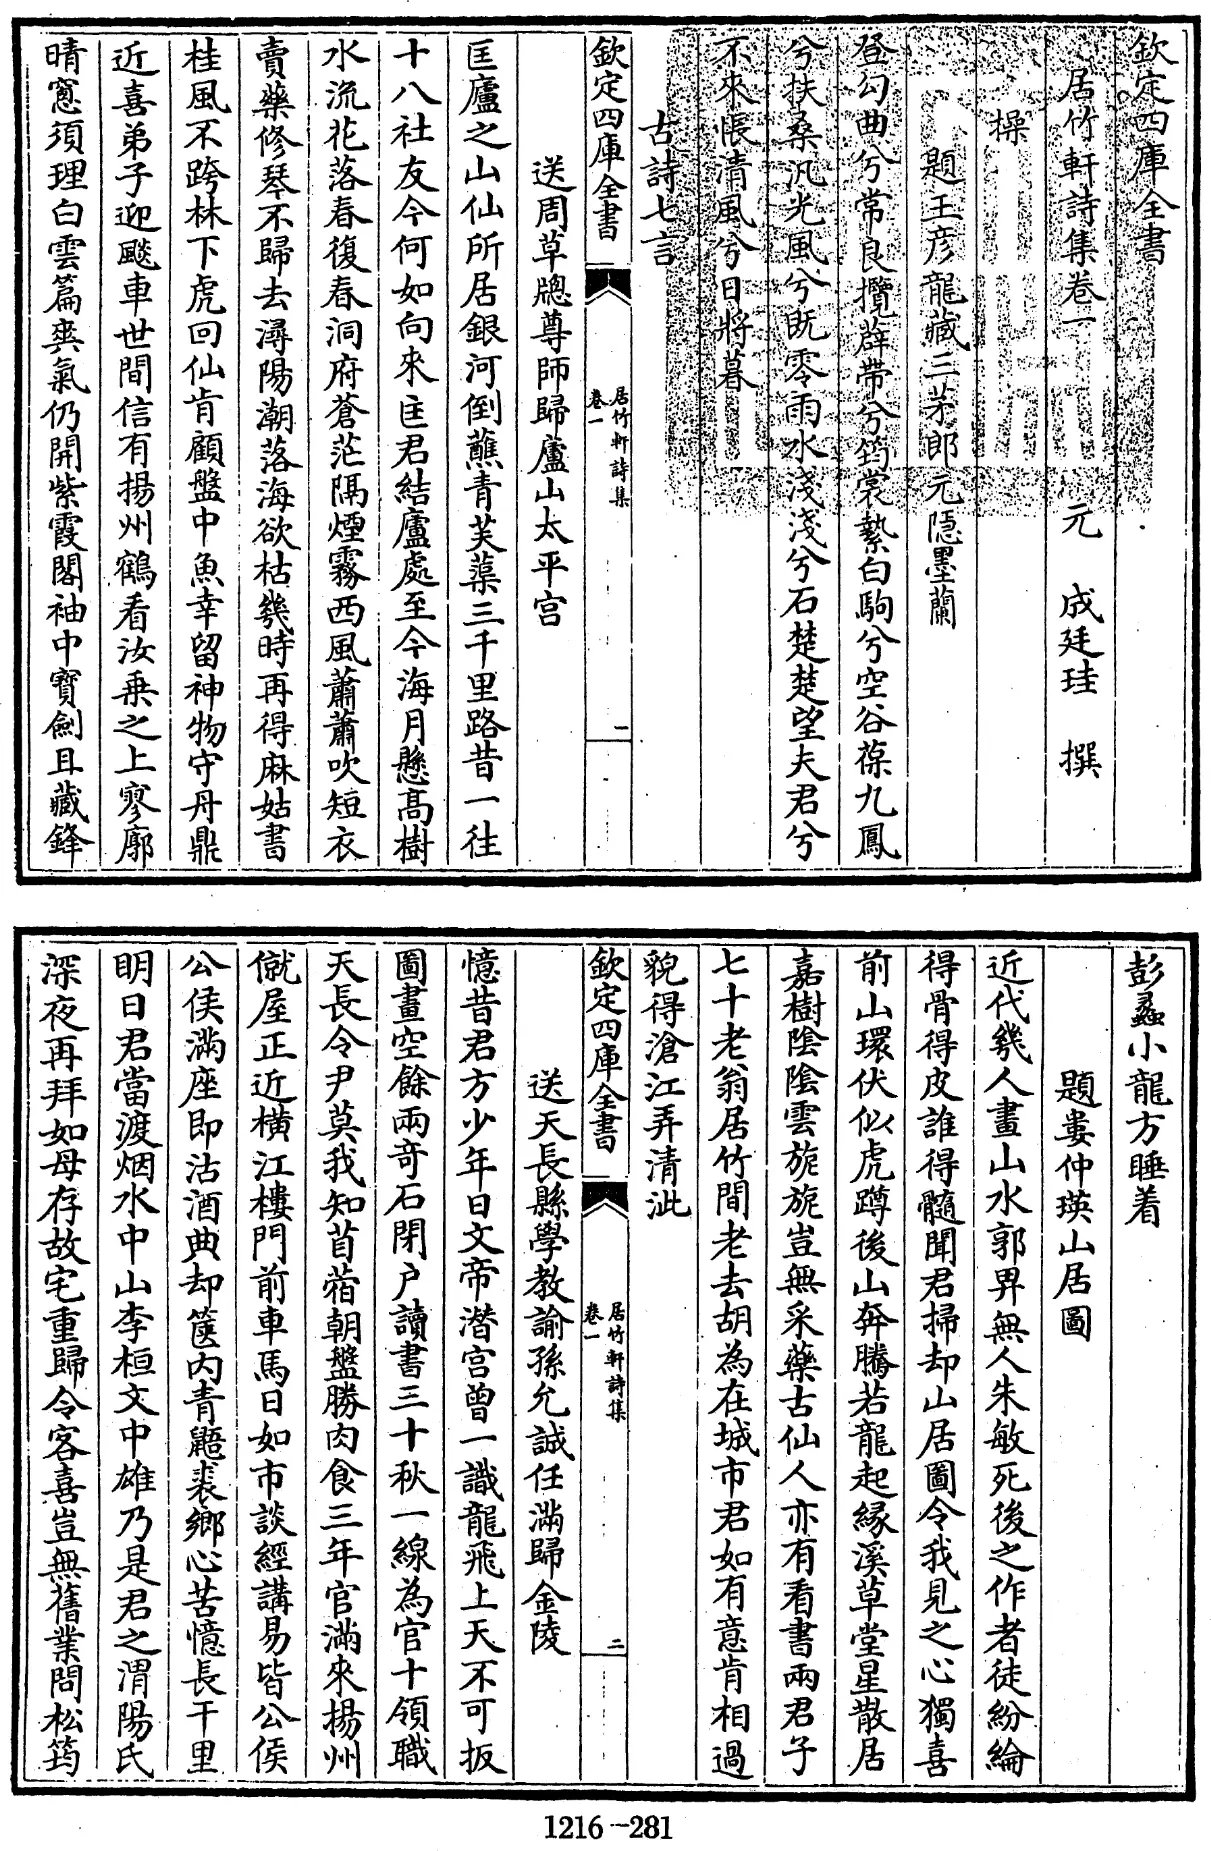 欽定四庫全書
居竹軒詩集卷一
元 成廷珪 撰
操
題王彦龍藏三茅郎元隱墨蘭
登勾曲兮常良攬薜帶兮筠裳縶白駒兮空谷葆九鳳
兮扶桑汎光風兮既零雨水淺淺兮石楚楚望夫君兮
不來悵清風兮日將暮
古詩七言
欽定四庫全書
居竹軒詩集
卷一
一
送周草牕尊師歸廬山太平宫
匡廬之山仙所居銀河倒蘸青芙蕖三千里路昔一往
十八社友今何如向來匡君結廬處至今海月懸髙樹
水流花落春復春洞府蒼茫隔煙霧西風蕭蕭吹短衣
賣藥修琴不歸去潯陽潮落海欲枯幾時再得麻姑書
桂風不跨林下虎回仙肯顧盤中魚幸留神物守丹鼎
近喜弟子迎飈車世間信有揚州鶴看汝乗之上寥廓
晴窓須理白雲篇爽氣仍開紫霞閣袖中寳劍且藏鋒
彭蠡小龍方睡着
題婁仲瑛山居圖
近代幾人畫山水郭畀無人朱敏死後之作者徒紛綸
得骨得皮誰得髓聞君掃却山居圖令我見之心獨喜
前山環伏似虎蹲後山奔騰若龍起縁溪草堂星散居
嘉樹陰陰雲旎旎豈無采藥古仙人亦有看書兩君子
七十老翁居竹間老去胡為在城市君如有意肯相過
貌得滄江弄清泚
欽定四庫全書
居竹軒詩集
卷一
二
送天長縣學教諭孫允誠任滿歸金陵
憶昔君方少年日文帝潜宫曾一識龍飛上天不可扳
圖畫空餘兩竒石閉户讀書三十秋一線為官十領職
天長令尹莫我知苜蓿朝盤勝肉食三年官滿來揚州
僦屋正近横江樓門前車馬日如市談經講易皆公侯
公侯滿座即沽酒典却篋内青鼯裘鄉心苦憶長干里
明日君當渡烟水中山李桓文中雄乃是君之渭陽氏
深夜再拜如母存故宅重歸令客喜豈無舊業問松筠
1216-281